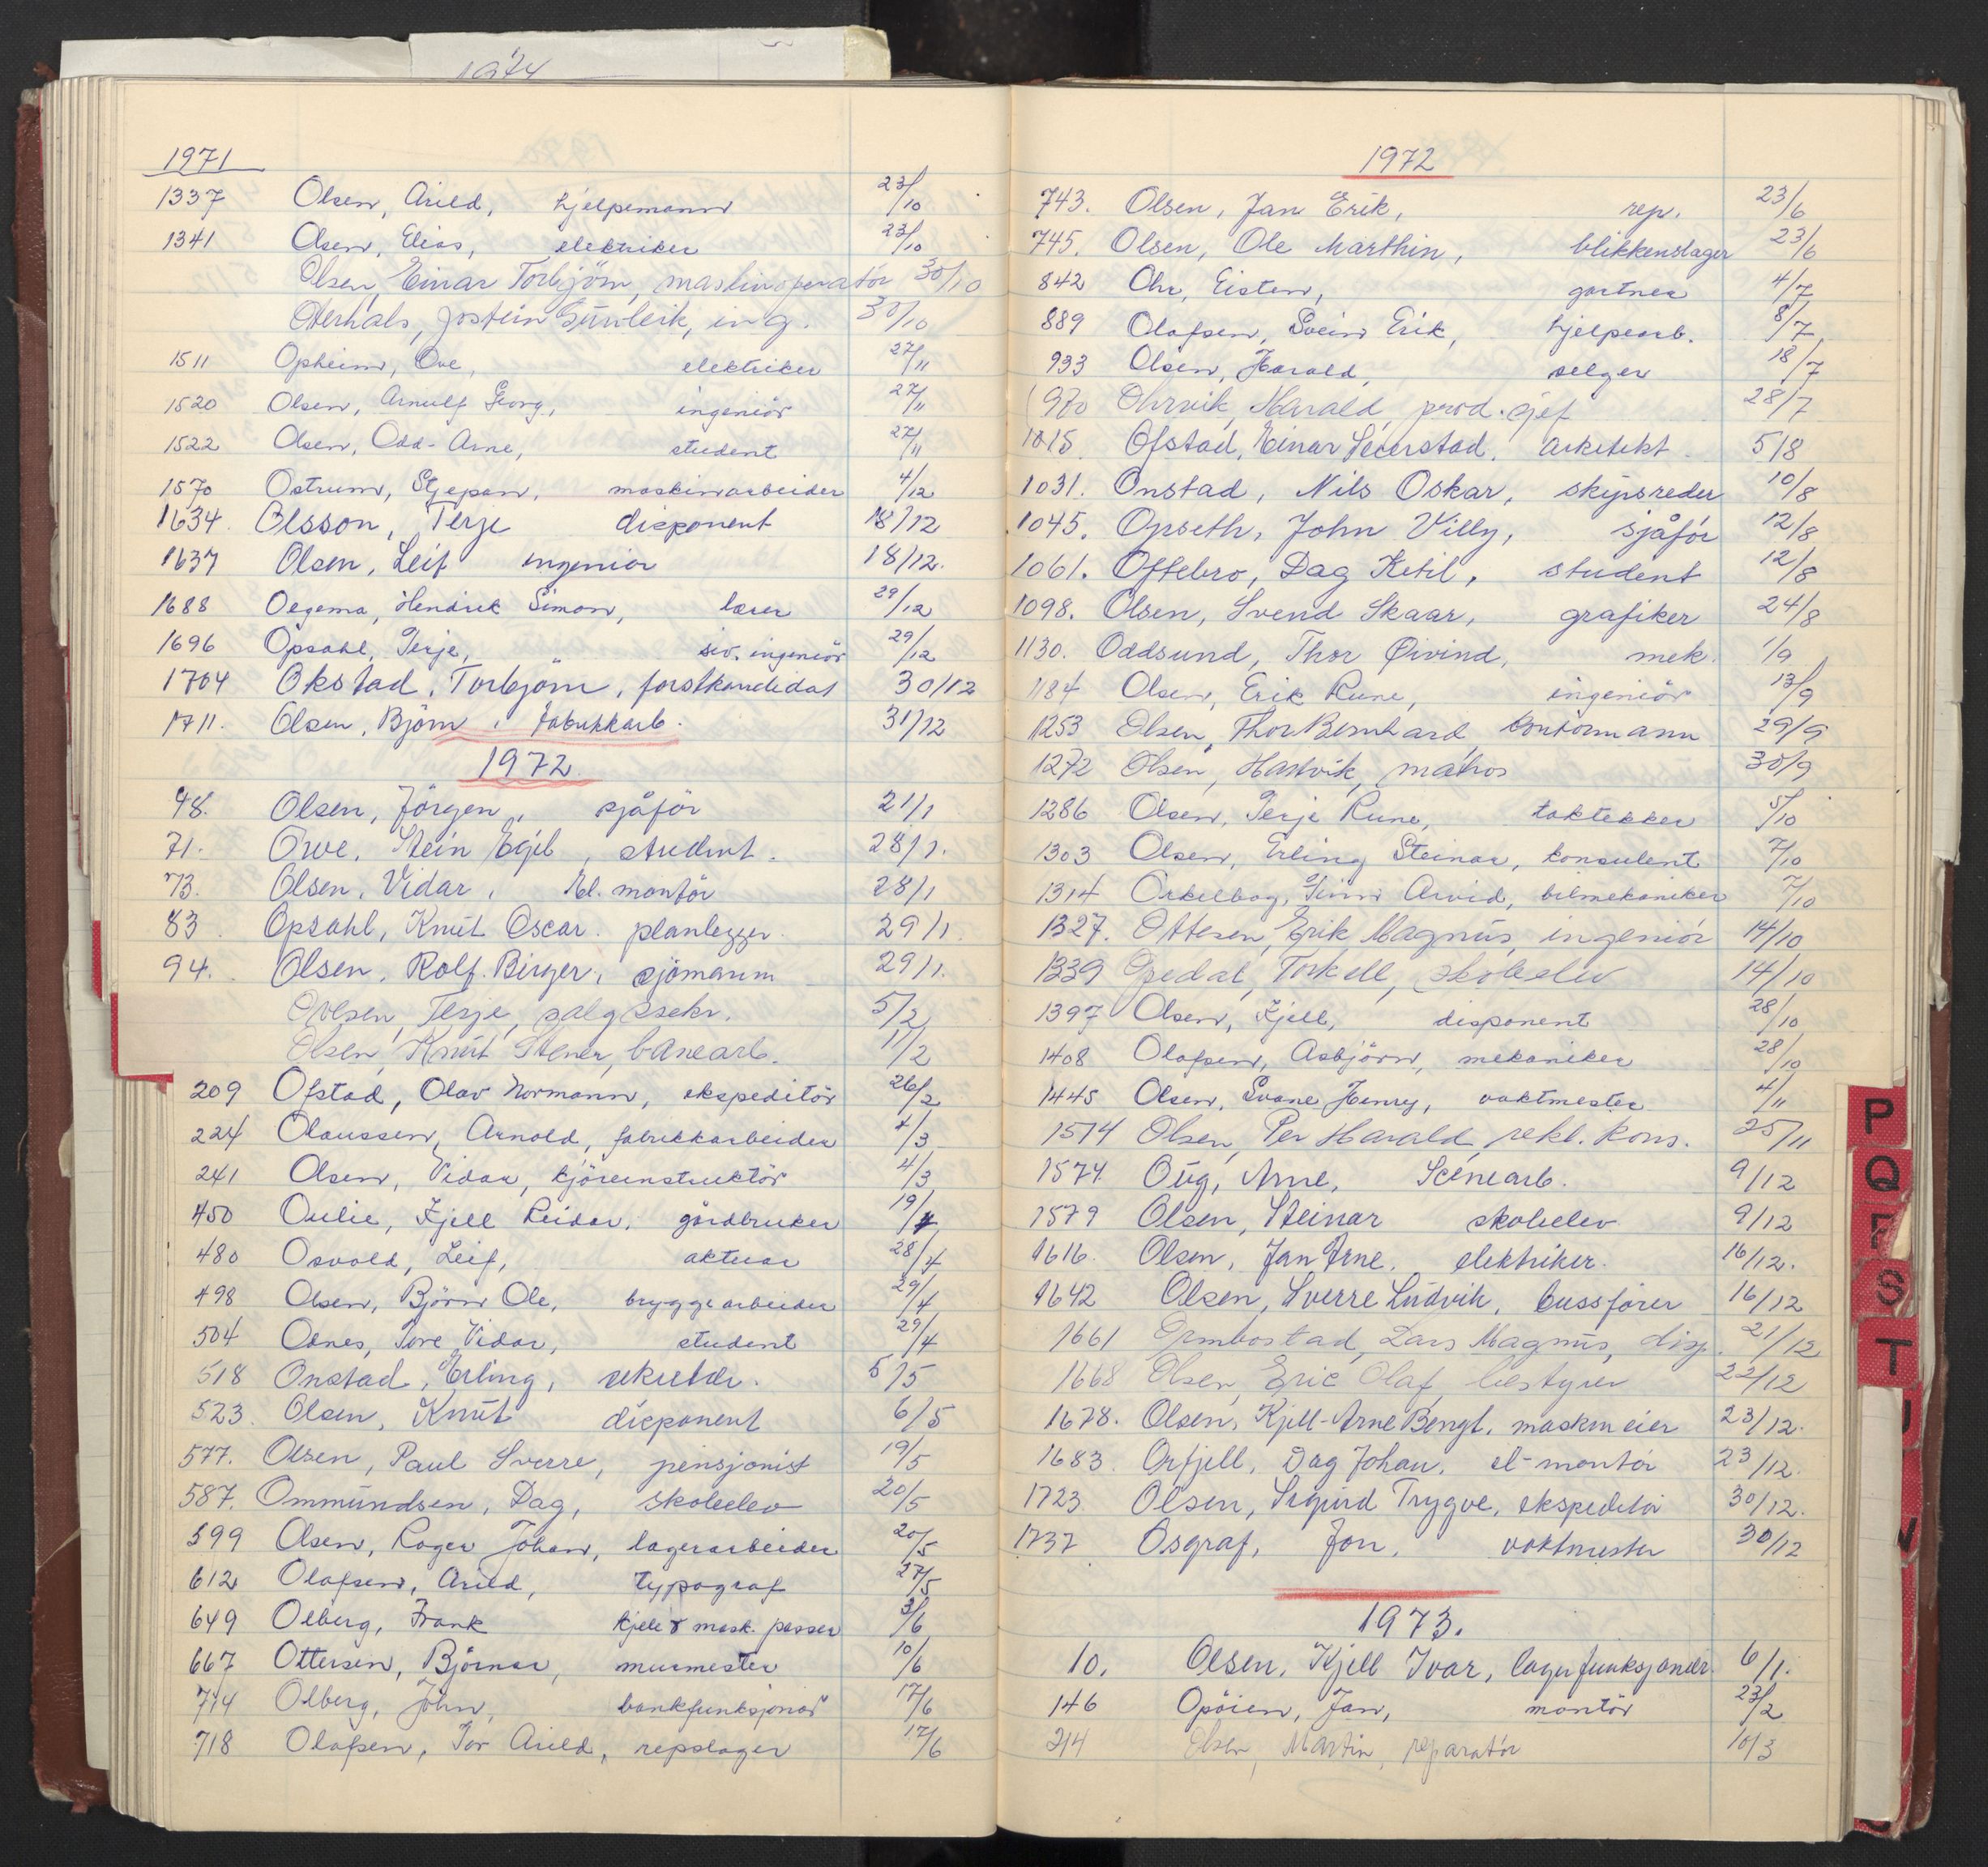 1974
1971
1337 Olsen, Arild, hjelpemann 23/10
1341 Olsen, Elias, elektriker 23/10
Olsen, Einar Torbjörn, maskinoperatör 30/10
Oterhals, Jostein, ing. 30/10
1511 Opheim, Ove, elektriker 27/11
1520 Olsen, Arnulf Georg, ingeniör 27/11
1522 Olsen, Odd-Arne, student 27/11
1570 Ostrum, Stjepan, maskinarbeider 4/12
1634. Olsson, Terje disponent 18/12
1637 Olsen, Leif ingeniör 18/12.
1688 Oegema, Hendrik Simon, lærer 29/12
1696 Opsahl, Terje, siv. ingeniör 29/12
1704 Okstad, Torbjörn, forstkandidat 30/12
1711. Olsen, Björn, fabrikkarb. 31/12
1972
48. Olsen, Jörgen, sjåför 21/1
71. Owe, Stein Egil, student. 28/1.
73. Olsen, Vidar, El. montör 28/1
83 Opsahl, Knut Oscar. planlegger. 29/1.
94. Olsen, Rolf Birger, sjömann 29/1.
Ovesen, Terje, salgssekr. 5/2
Olsen, Knut Stener, banearb. 11/2
209 Ofstad, Olav Normann, ekspeditör 26/2
224 Olaussen, Arnold, fabrikkarbeider 4/3
241 Olsen, Vidar, kjöreinstruktör 4/3
450 Oulie, Kjell Reidar, gårdbruker 19/4
480 Osvold, Leif, aktuar 28/4
498 Olsen, Björn Ole, bryggearbeider 29/4
504 Osnes, Tore Vidar, student 29/4
518 Onstad, Erling, sekretær. 5/5
523. Olsen, Knut disponent 6/5
577. Olsen, Paul Sverre, pensjonist 19/5
587. Ommundsen, Dag, skoleelev 20/5
599 Olsen, Roger Johan, lagerarbeider 20/5
612 Olafsen, Arild, typograf 27/5
649 Olberg, Frank kjele & mask. passer 3/6
667 Ottersen, Björnar, murmester 10/6
714 Olberg, John, bankfunksjonær 17/6
718 Olafsen, Tor Arild, repslager 17/6
1972
743. Olsen, Jan Erik, rep. 23/6
745. Olsen, Ole Marthin, blikkenslager 23/6
842 Ohr, Eisten, gartner 4/7
889 Olafsen, Svein Erik, hjelpearb. 8/7
933 Olsen, Harald, selger 18/7
970 Ohrvik, Harald, prod.sjef 28/7
1015 Ofstad, Einar Seierstad, arkitekt. 5/8
1031. Onstad, Nils Oskar, skipsreder 10/8
1045. Opseth, John Villy, sjåför 12/8
1061. Oftebro, Dag Ketil, student 12/8
1098. Olsen, Svend Skaar, grafiker 24/8
1130. Oddsund, Thor Øivind, mek. 1/9
1184 Olsen, Erik Rune, ingeniör 13/9
1253 Olsen, Thor Bernhard, kontormann 29/9
1272 Olsen, Hartvik, matros 30/9
1286 Olsen, Terje Rune, taktekker 5/10
1303 Olsen, Erling Steinar, konsulent 7/10
1314 Orkelbog, Finn Arvid, bilmekaniker 7/10
1327. Ottesen, Erik Magnus, ingeniör 14/10
1339 Opedal, Torkell, skoleelev 14/10
1397 Olsen, Kjell, disponent 28/10
1408 Olafsen, Asbjörn, mekaniker 28/10
1445 Olsen, Svane Henry, vaktmester 4/11
1514 Olsen, Per Harald, rekl. kons. 25/11
1574 Oug, Arne, Scenearb. 9/12
1579 Olsen, Steinar skoleelev 9/12
1616. Olsen, Jan Arne, elektriker. 16/12.
1642 Olsen, Sverre Ludvik, bussförer 16/12
1661 Ormbostad, Lars Magnus, disp. 21/12
1668 Olsen, Eric Olaf, bestyrer 22/12
1678. Olsen, Kjell-Arne Bengt. maskineier 23/12.
1683. Orfjell, Dag Johan, el-montör 23/12.
1723 Olsen, Sigurd Trygve, ekspeditör 30/12.
1737 Osgraf, Jon, vaktmester 30/12
1973.
10. Olsen, Kjell Ivar, lagerfunksjonær. 6/1.
146 Opöien, Jan, montör 23/2
214 Olsen, Martin, reparatör 10/3
P
Q
R
S
T
U
V